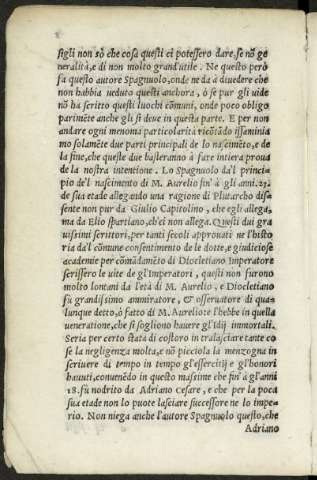 sigli non sò che cosa questi ci potessero dare, se nõ ge
neralità, e di non molto grand'utile. Ne questo però
fa questo autore Spagnuolo, onde ne da à divedere che
non habbia veduto questi anchora, ò se pur gli vide
nõ ha scritto questi luochi cõmuni, onde poco obligo
parimẽte anche gli si deve in questa parte. E per non
andare ogni menoma particolarità ricõtãdo issaminia
mo solamẽte due parti principali de lo nascimẽto, e de
la fine, che queste due basteranno à fare intiera prova
de la nostra intentione. Lo Spagnuolo da'l princi-
pio de'l nascimento di M. Aurelio fin'à gli anni. 27.
de sua etade allegando una ragione di Plutarcho dis-
sente non pur da Giulio Capitolino, che egli allega,
ma da Elio Spartiano, ch'ei non allega. Questi dui gra
vissimi scrittori, per tanti secoli approvati ne l'histo
ria da'l cõmune consentimento de le dotte, e giudiciose
academie per cõmãdamẽto di Diocletiano Imperatore
scrissero le vite de gl'Imperatori, questi non furono
molto lontani da l'età di M. Aurelio, e Diocletiano
fu grandissimo ammiratore, & osservatore di qua-
lunque detto, ò fatto di M. Aurelio te l'hebbe in quella
veneratione, che si sogliono havere gl'Idij immortali.
Seria per certo stata di costoro in tralasciare tante co
se la negligenza molta, e nõ picciola la menzogna in
scrivere di tempo in tempo gl'essercitij e gl'honori
havuti, convenẽdo in questo massime che fin'à gl'anni
18. fù nodrito da Adriano Cesare, e che per la poca
sua etade non lo puote lasciare successore ne lo impe-
rio. Non niega anche l'autore Spagnuolo questo, che
Adriano